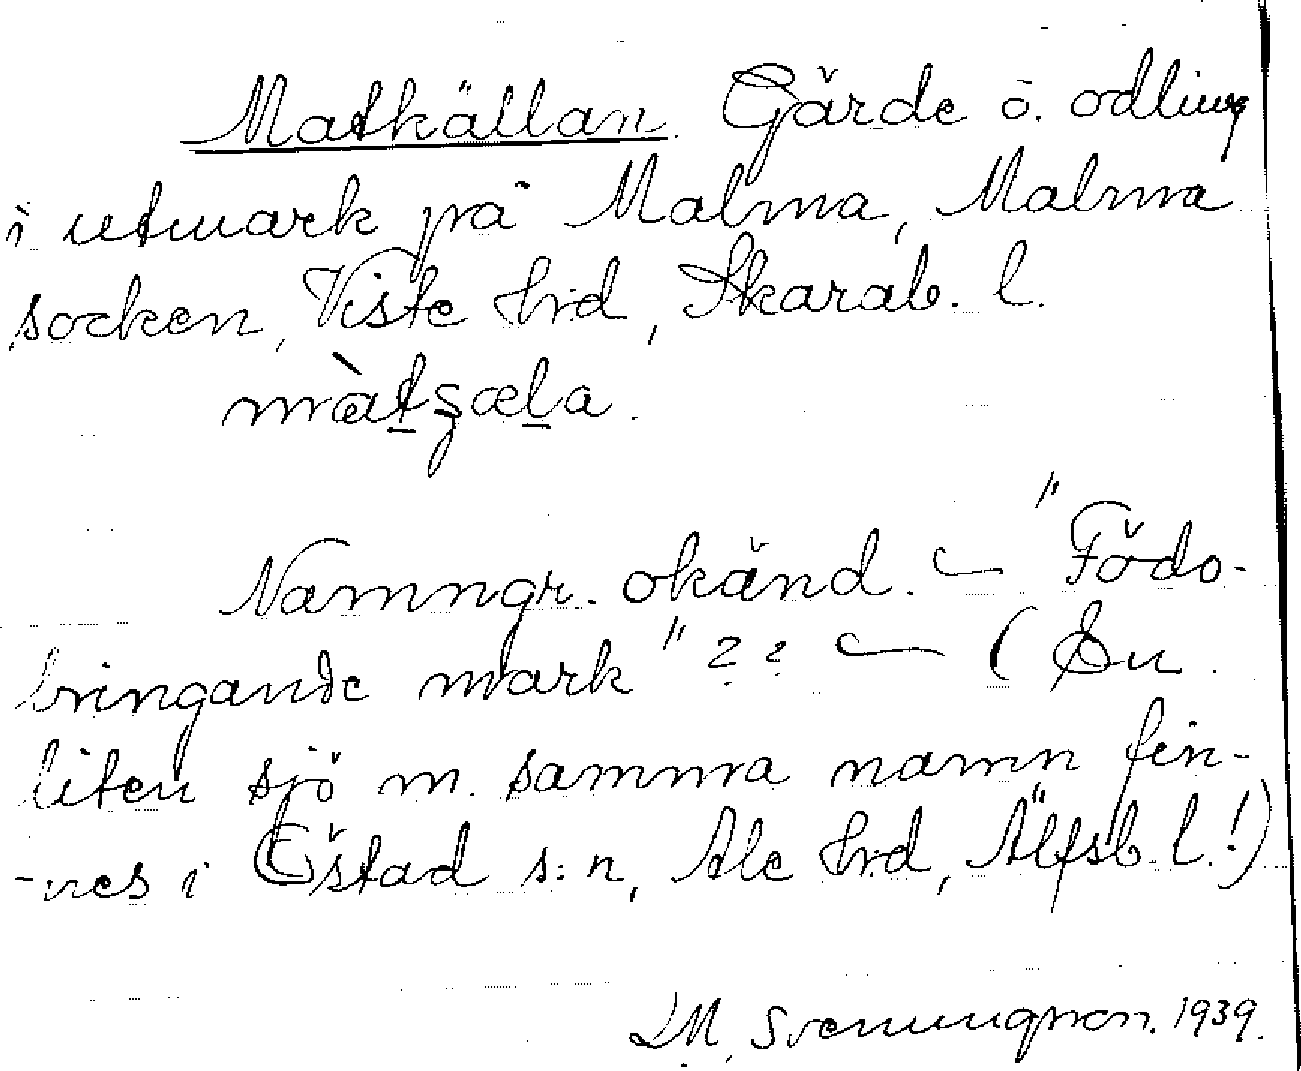 Matkällan. Gärde o. odling
i utmark på Malma, Malma
socken, Viste hrd, Skarab. l.
màtʒæla.
Namngr. okänd. — "Födo-
bringande mark" ?? — (En
liten sjö m. samma namn fin-
-nes i Östad s:n, Ale hrd, Älfsb. l.!)
Svenungsson. 1939.